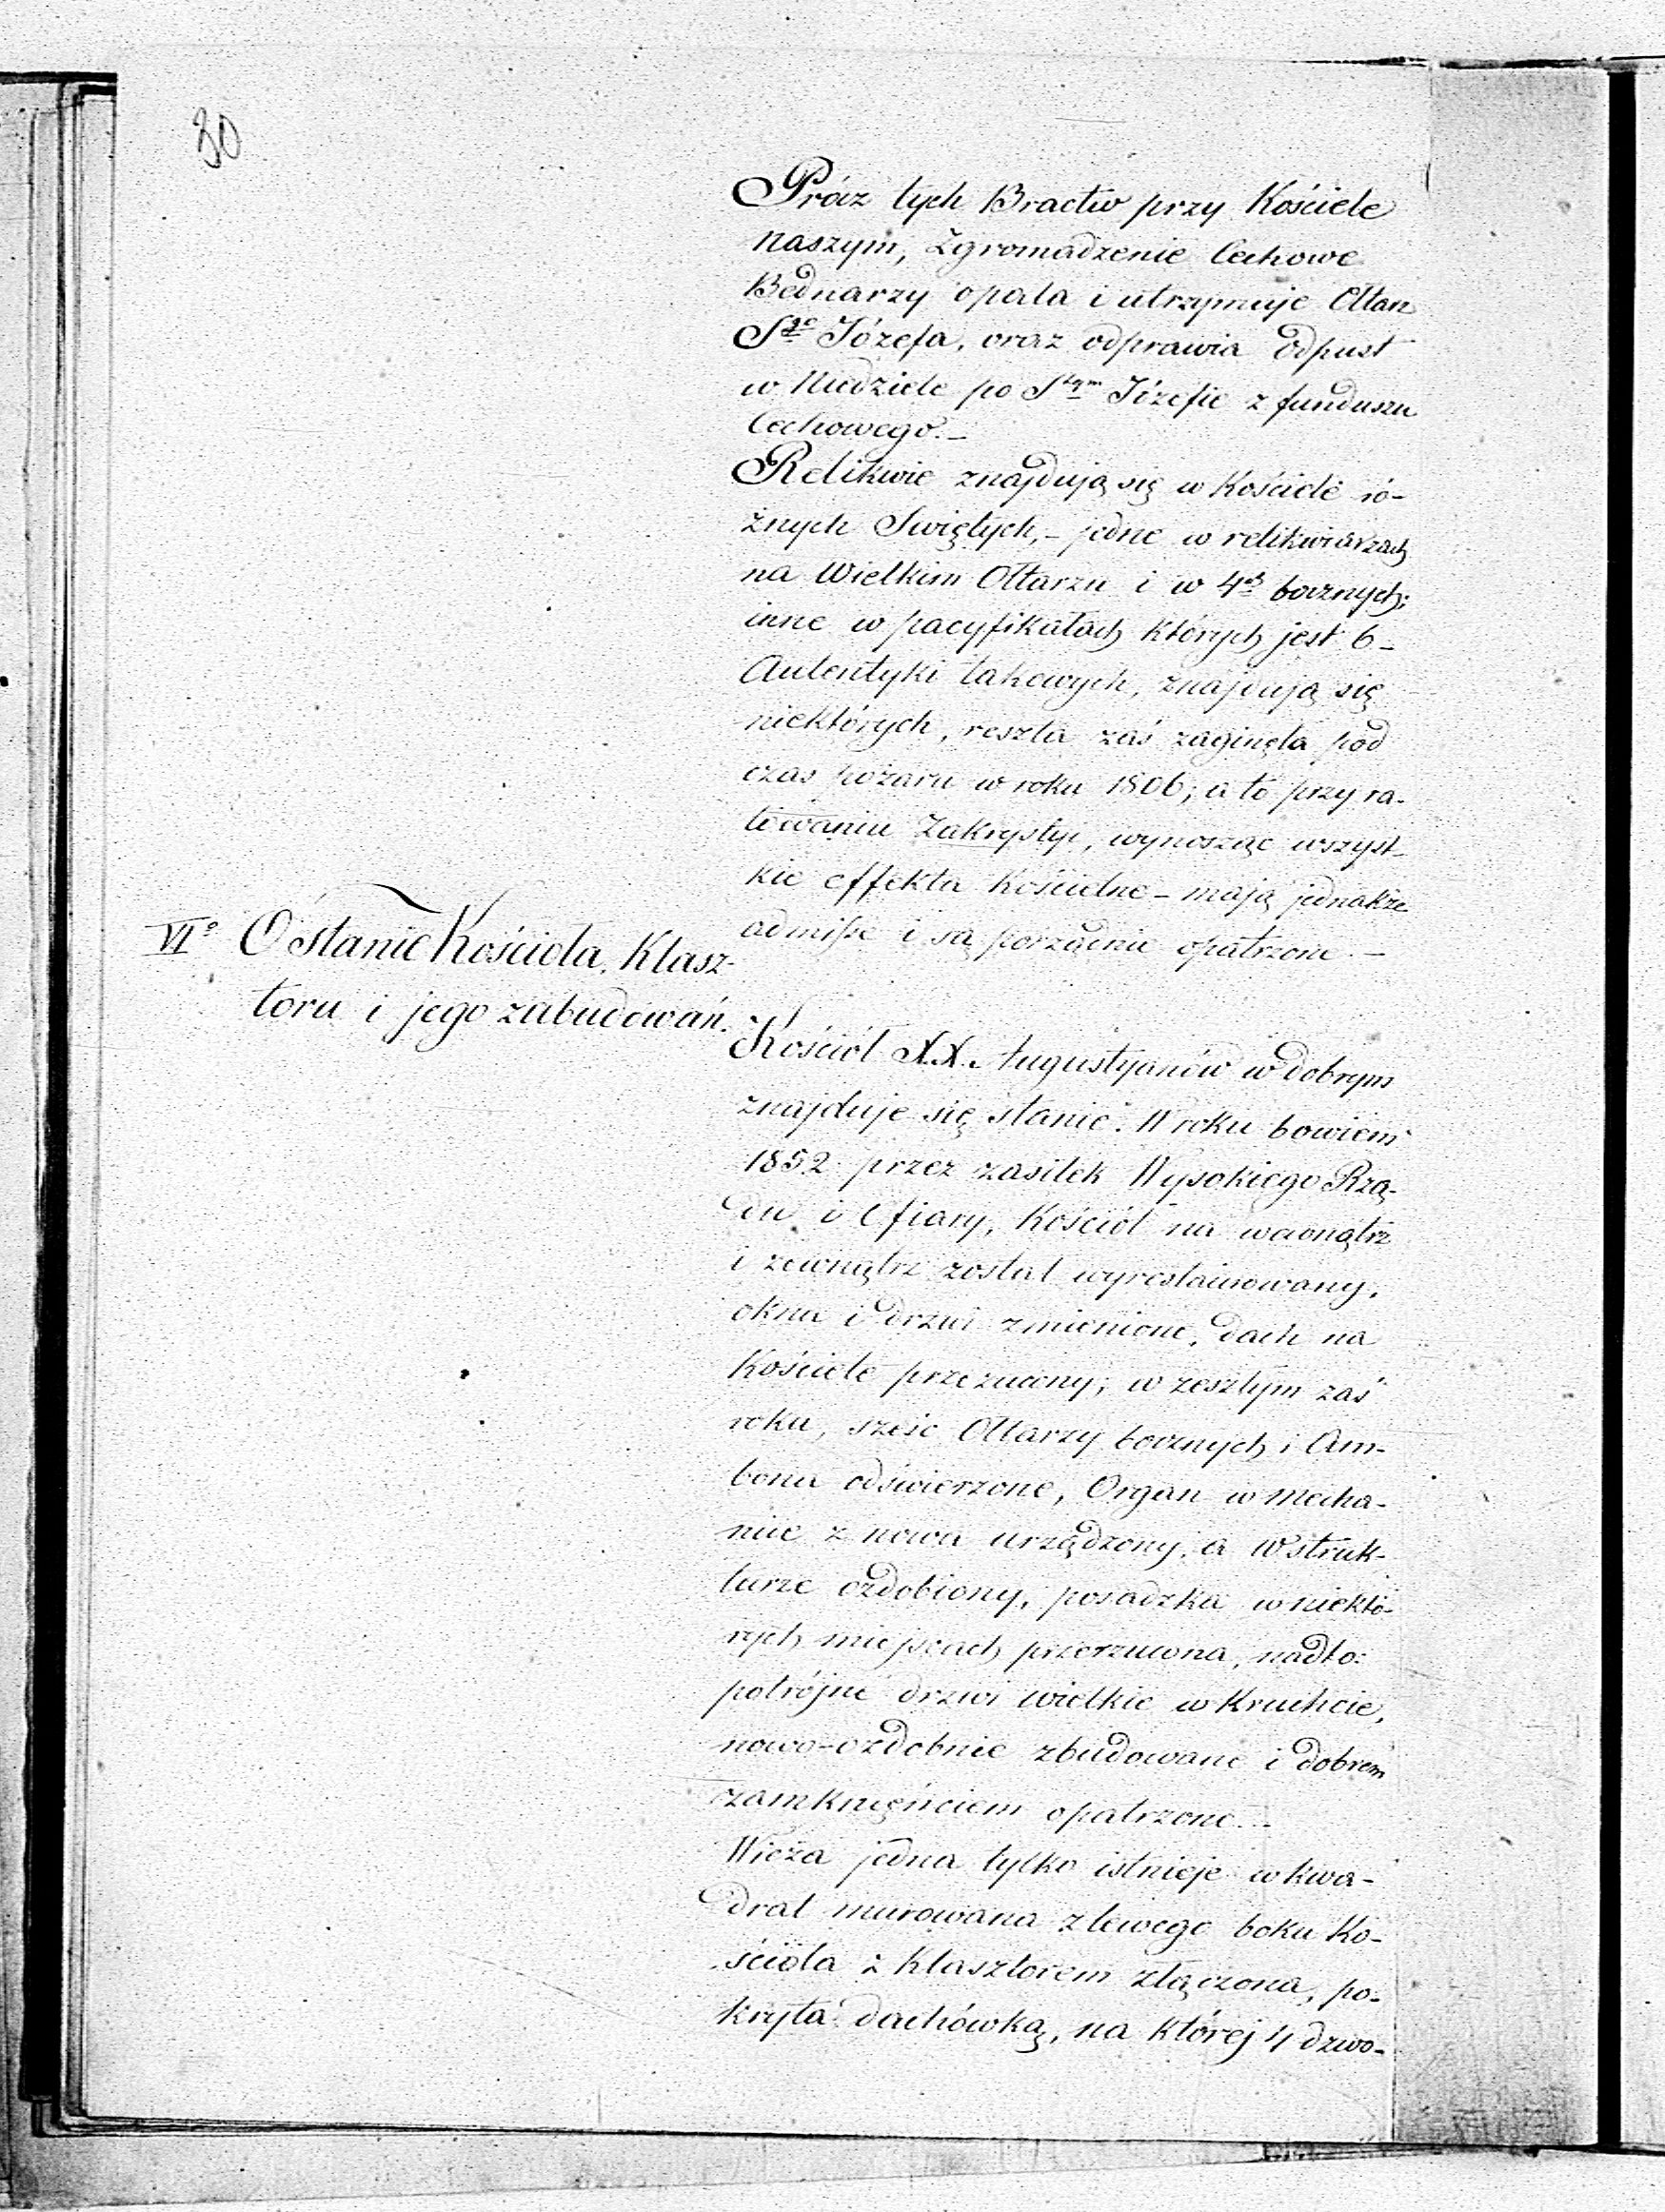 30
Prócz tych Bractw przy Kościele
naszym, Zgromadzenie Cechowe
Bednarzy opala i utrzymuje Ołtarz
Sgo Józefa, oraz odprawia Odpust
w Niedziele po Stym Józefie z funduszu
Cechowego.—
Relikwie znajdują się w Kościele ró-
żnych Swiętych,- jedne w relikwiarzach
na Wielkim Ołtarzu i w 4ch bocznych;
inne w pacyfikałach których jest 6-
Autentyki takowych, znajdują się
niektórych, reszta zaś zaginęła pod
czas pożaru w roku 1806; a to przy ra-
towaniu Zakrystyi, wynosząc wszyst-
kie effekta Kościelne - mają jednakże
admisse i są porządnie opatrzone.—
VIo O stanie Kościoła, Klasz-
toru i jego zabudowań.
Kościół XX. Augustyanów w dobrym
znajduje się stanie. W roku bowiem
1852 przez zasiłek Wysokiego Rzą-
du i Ofiary, Kościół na wewnątrz
i zewnątrz został wyrestaurowany,
okna i drzwi zmienione, dach na
Kościele przerzucony; w zeszłym zaś
roku, sześć Ołtarzy bocznych i Am-
bona odświerzone, Organ w mecha-
nice z nowa urządzony, a w struk-
turze ozdobiony, posadzka w niektó-
rych miejscach przerzucona, nadto:
potrójne drzwi wielkie w Kruchcie,
nowo-ozdobnie zbudowane i dobrem
zamknięńciem opatrzone.-
Wieża jedna tylko istnieje w kwa-
drat murowana z lewego boku Ko-
ścioła z Klasztorem złączona, po-
kryta dachówką, na której 4 dzwo-